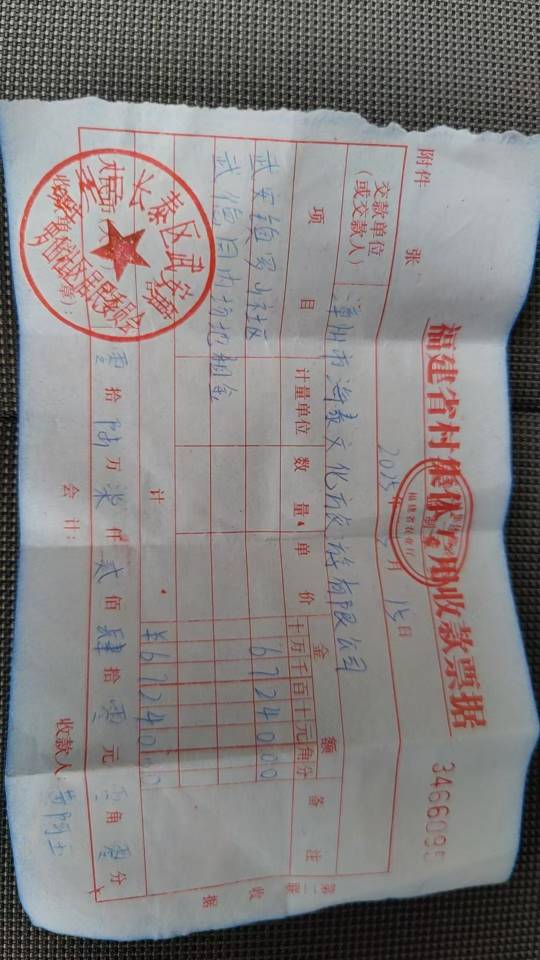 福建省村集体专用收款票据
3466095
福建省农业厅
2025年 月 15日
附件 张
交款单位(或交款人) 漳州市海泰文化旅游有限公司
项目 计量单位 数量 单价 金额 备注
十万千百十元角分
武安镇罗山社区 6724000
武信园内场地租金
计 ¥6724000
零拾陆万柒仟贰佰肆拾零元零角零分
收款单位(章): 会计: 收款人:
长泰区武安镇
罗山社区居民委员会
第二联
收据